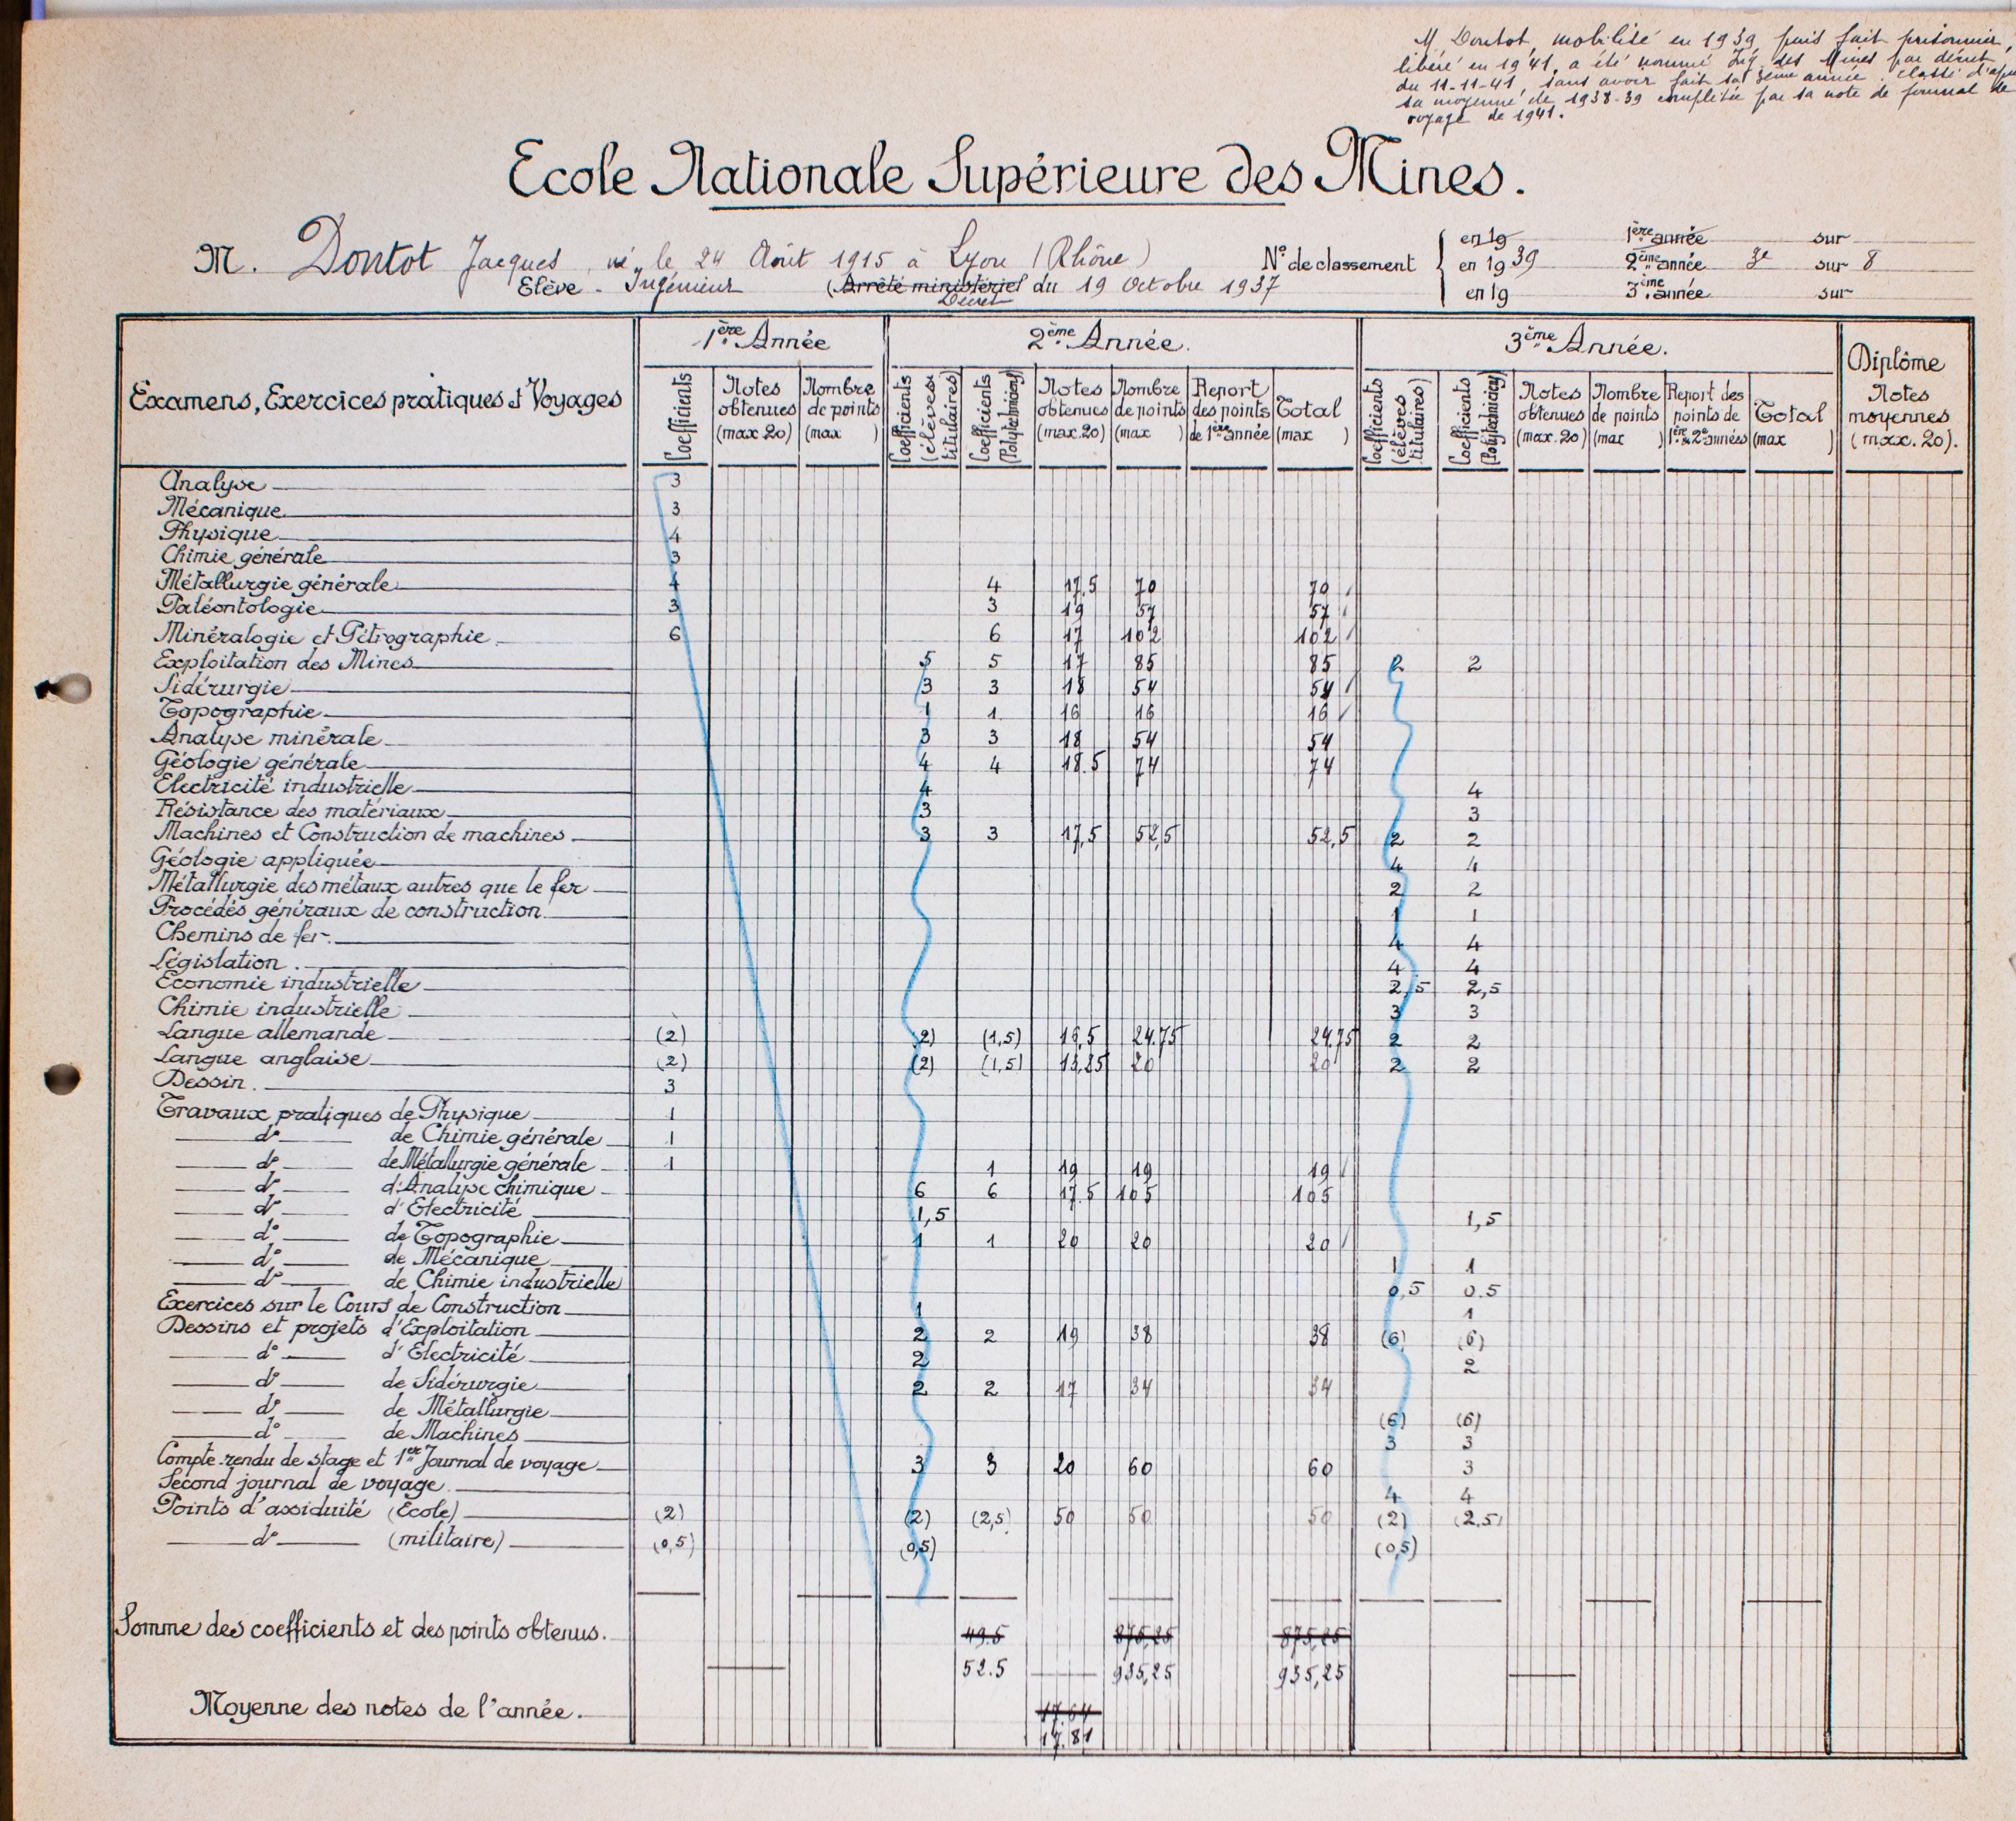 M. Dontot, mobilisé en 1939, puis fait prisonnier,
libéré en 1941, a été nommé Ing. des Mines par décret
du 11-11-41, sans avoir fait sa 3ème année. Classé d'après
sa moyenne de 1938-39 complétée par sa note de journal de
voyage de 1941.
Ecole Nationale Supérieure des Mines.
M. Dontot Jacques, né le 24 Août 1915 à Lyon (Rhône)
Elève - Ingénieur (Arrêté ministériel Décret du 19 Octobre 1937
N° de classement
en 19 1ère année sur
en 19 39 2ème année 3e sur 8
en 19 3ème année sur
Examens, Exercices pratiques et Voyages 1ère Année 2ème Année. 3ème Année. Diplôme Notes moyennes (max. 20).
Coefficients Notes obtenues (max 20) Nombre de points (max )
Coefficients (élèves titulaires) Coefficients (Polytechniciens) Notes obtenues (max. 20) Nombre de points (max ) Report des points de 1ère année Total (max )
Coefficients (élèves titulaires) Coefficients (Polytechniciens) Notes obtenues (max. 20) Nombre de points (max ) Report des points de 1ère & 2e années Total (max )
Analyse 3
Mécanique 3
Physique 4
Chimie générale 3
Métallurgie générale 4 4 17,5 70 70
Paléontologie 3 3 19 57 57
Minéralogie et Pétrographie 6 6 17 102 102
Exploitation des Mines 5 5 17 85 85 2 2
Sidérurgie 3 3 18 54 54
Topographie 1 1 16 16 16
Analyse minérale 3 3 18 54 54
Géologie générale 4 4 18.5 74 74
Electricité industrielle 4 4
Résistance des matériaux 3 3
Machines et Construction de machines 3 3 17,5 52,5 52,5 2 2
Géologie appliquée 4 4
Métallurgie des métaux autres que le fer 2 2
Procédés généraux de construction 1 1
Chemins de fer 4 4
Législation 4 4
Economie industrielle 2,5 2,5
Chimie industrielle 3 3
Langue allemande (2) (2) (1,5) 16,5 24.75 24,75 2 2
Langue anglaise (2) (2) (1,5) 13,25 20 20 2 2
Dessin 3
Travaux pratiques de Physique 1
d° de Chimie générale 1
d° de Métallurgie générale 1 1 19 19 19
d° d'Analyse chimique 6 6 17.5 105 105
d° d'Electricité 1,5 1,5
d° de Topographie 1 1 20 20 20
d° de Mécanique 1 1
d° de Chimie industrielle 0,5 0.5
Exercices sur le Cours de Construction 1 1
Dessins et projets d'Exploitation 2 2 19 38 38 (6) (6)
d° d'Electricité 2 2
d° de Sidérurgie 2 2 17 34 34
d° de Métallurgie (6) (6)
d° de Machines 3 3
Compte-rendu de stage et 1er Journal de voyage 3 3 20 60 60 3
Second journal de voyage 4 4
Points d'assiduité (Ecole) (2) (2) (2,5) 50 50 50 (2) (2,5)
d° (militaire) (0,5) (0,5) (0,5)
Somme des coefficients et des points obtenus. 49.5 875,25 875,25
52.5 935,25 935,25
Moyenne des notes de l'année. 17.64
17.81